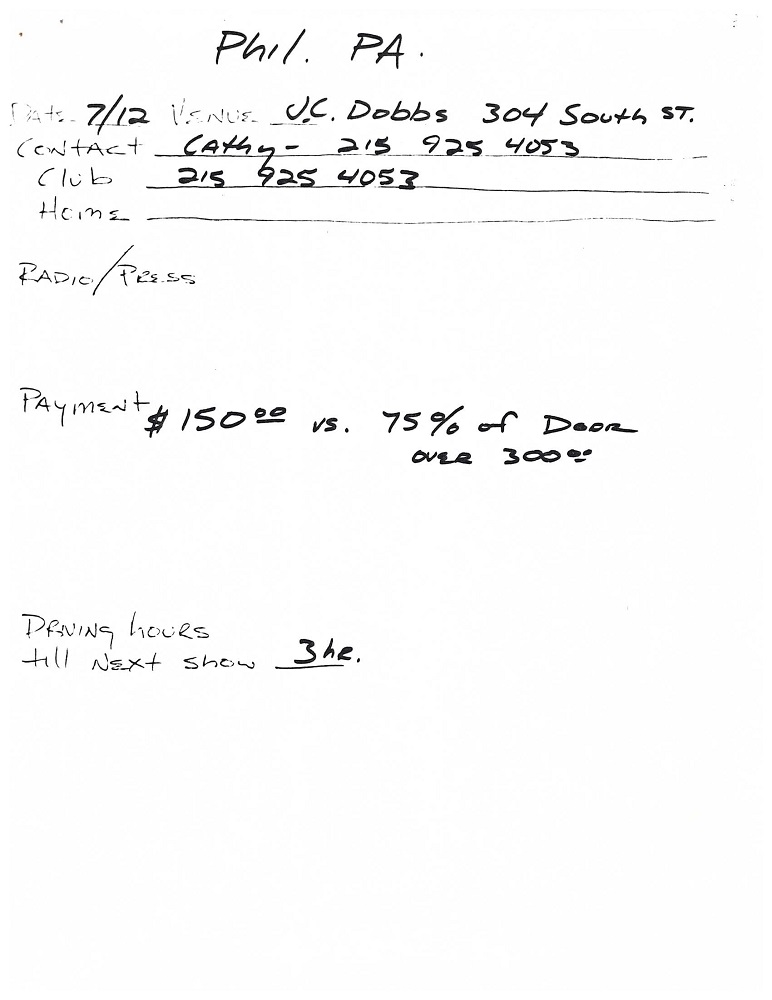 Phil. PA.
Date 7/12 Venue J.C. Dobbs 304 South St.
Contact Cathy - 215 925 4053
Club 215 925 4053
Home
Radio/Press
Payment $150.00 vs. 75% of Door
over 300.00
Driving hours
till next show 3 hr.